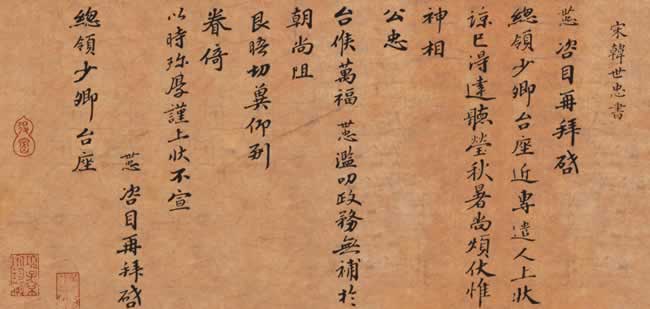 宋韓世忠書
世忠咨目再拜啓
總領少卿台座近專遣人上狀
諒已得達聽瑩秋暑尚煩伏惟
神相
公忠
台候萬福 世忠濫叨政務無補於
朝尚阻
良晤切冀仰
眷倚
以時珍厚謹上狀不宣
世忠咨目再拜啓
總領少卿台座